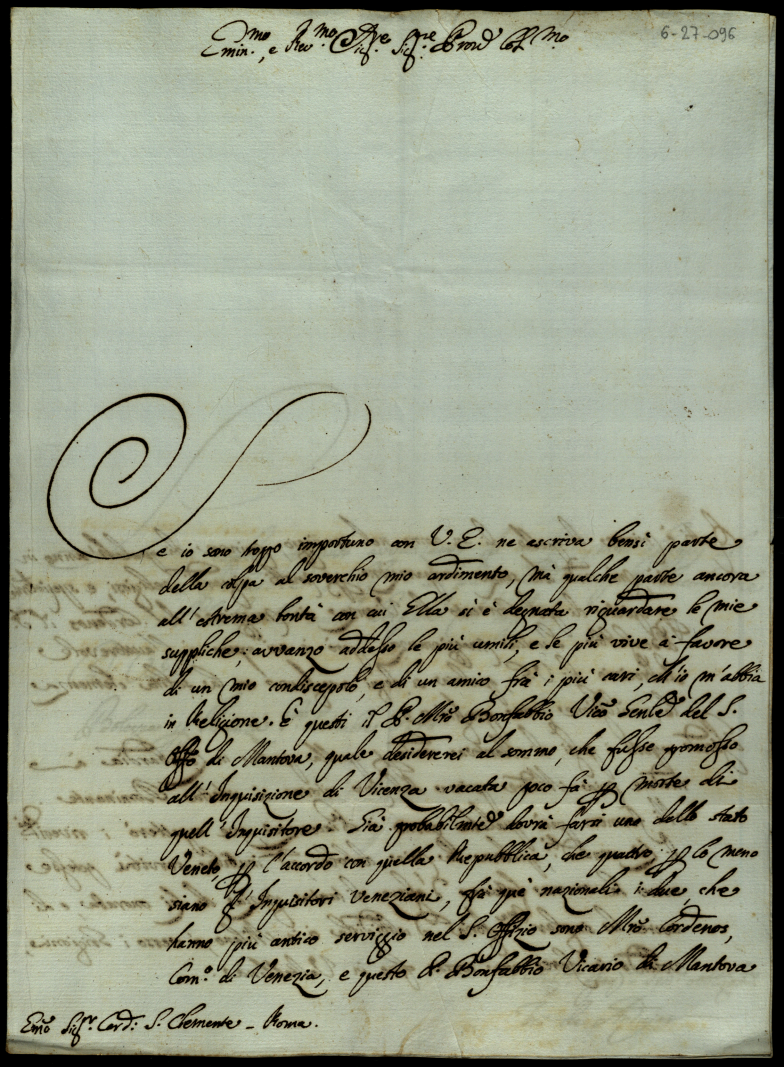 6-27-096
Emin.mo, e Rev.mo Sig.re Sig.re Pron Col.mo
Se io sono troppo importuno con V. E. ne ascriva bensì parte
della colpa al soverchio mio ardimento, mà qualche parte ancora
all'estrema bontà con cui Ella si è degnata riguardare le mie
suppliche: avvanzo addesso le più umili, e le più vive à favore
di un mio condiscepolo, e di un amico frà i più cari, ch'io m'abbia
in Religione. È questi il P. Mr̃o Bonfabbio Vicõ Genlẽ del S.
Offo di Mantova, quale desidererei al sommo, che fusse promosso
all'Inquisizione di Vicenza vacata poco fà per morte di
quell'Inquisitore. Già probabilmte dovrà farsi uno dello stato
Veneto, per l'accordo con quella Repubblica, che quattro, per lo meno
siano gl'Inquisitori Veneziani, frà què nazionali i due, che
hanno più antico serviggio nel S. Offizio sono Mr̃o Cordenos,
Com.o di Venezia, e questo P. Bonfabbio Vicario di Mantova
Emõ Sig.r Card: S. Clemente - Roma.